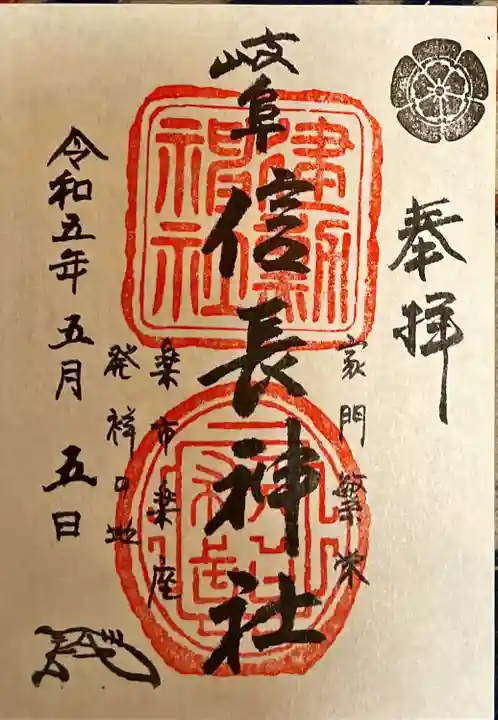 奉拝
家門繁栄
岐阜信長神社
建勲
神社
楽市楽座
発祥の地
令和五年五月五日